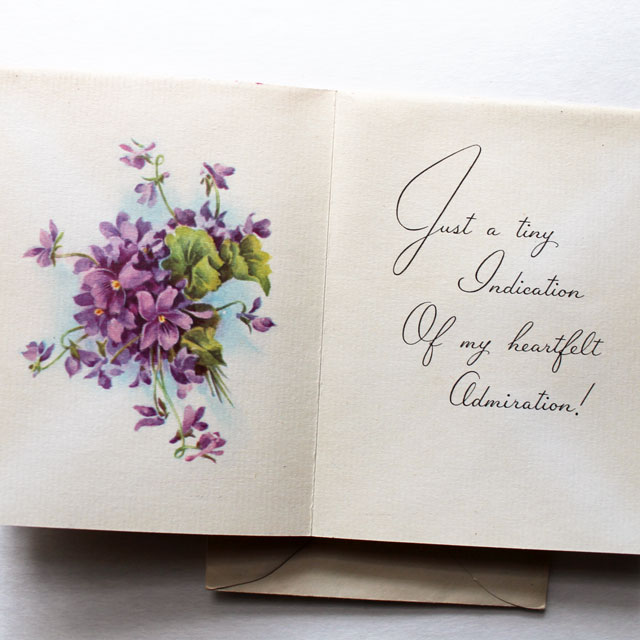 Just a tiny
Indication
Of my heartfelt
Admiration!